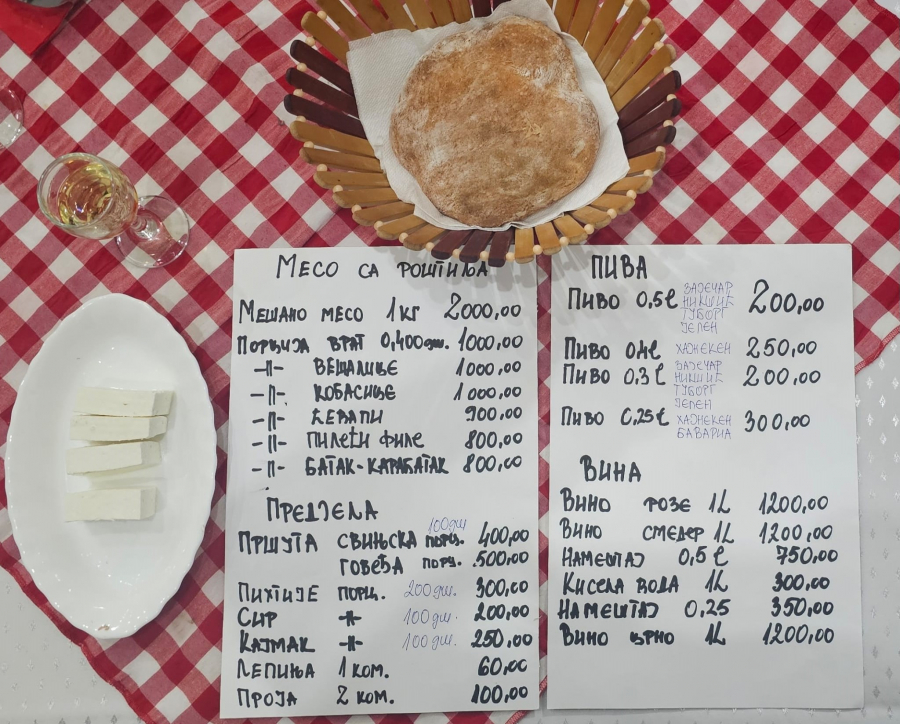 Месо са роштиља
Мешано месо 1кг 2000,00
Порција врат 0,400гм. 1000,00
-||- вешалице 1000,00
-||- кобасице 1000,00
-||- ћевапи 900,00
-||- пилећи филе 800,00
-||- батак-карабатак 800,00
Предјела
100гм
Пршута свињска порц. 400,00
говеђа порц. 500,00
Пихтије порц. 200гм. 300,00
Сир -||- 100гм. 200,00
Кајмак -||- 100гм. 250,00
Лепиња 1 ком. 60,00
Проја 2 ком. 100,00
Пива
Пиво 0,5l Зајечар 200,00
Никшић
Туборг
Јелен
Пиво 0,4l Хајнекен 250,00
Пиво 0,3l Зајечар 200,00
Никшић
Туборг
Јелен
Пиво 0,25l Хајнекен 300,00
Бавариа
Вина
Вино розе 1L 1200,00
Вино смедер 1L 1200,00
Намештај 0,5l 750,00
Кисела вода 1L 300,00
Намештај 0,25 350,00
Вино црно 1L 1200,00